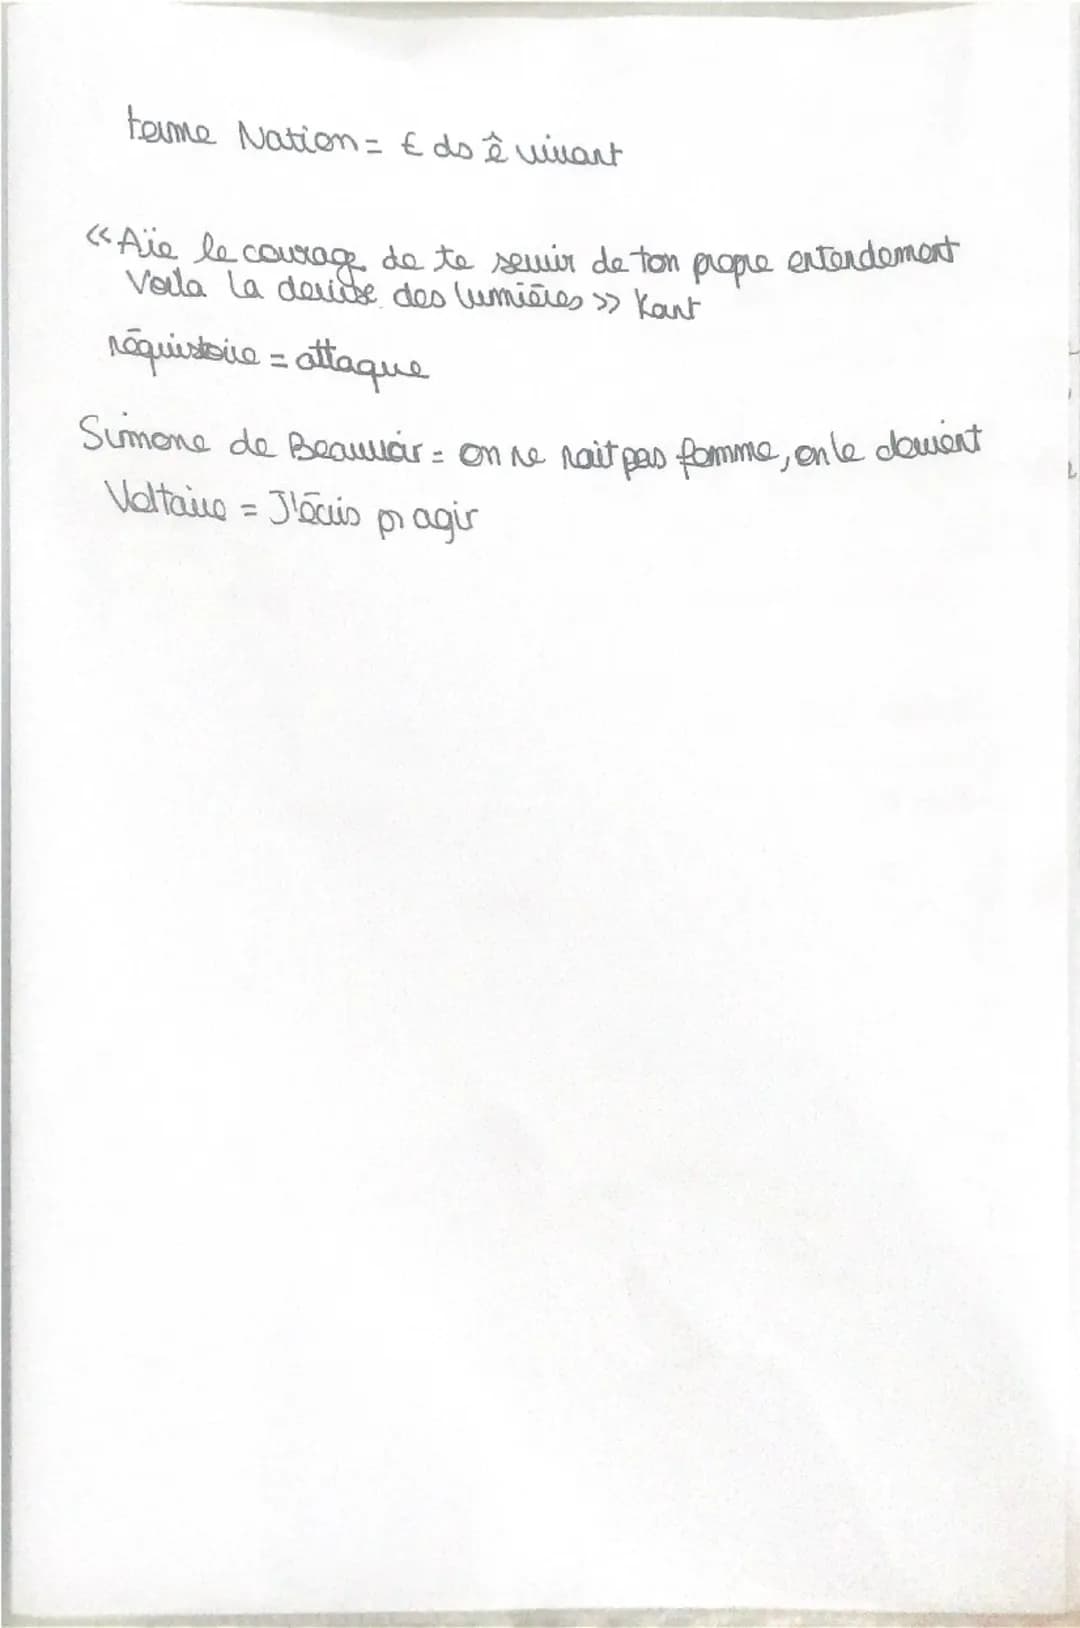 terme Nation = € ds ê vivant
«Aie le courage de te servir de ton propre entendement
Voila la devise des lumières» Kant
réquistoire = attaque
Simone de Beauvoir = on ne nait pas femme, on le devient
Voltaire = J'écris pr agir